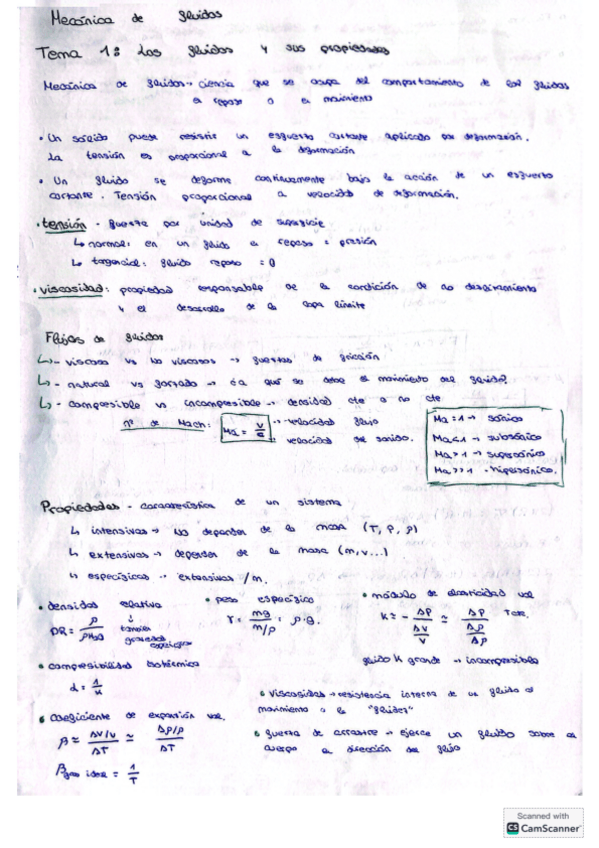 Mecánica de fluidos
Tema 1: Los fluidos y sus propiedades
Mecánica de fluidos → ciencia que se ocupa del comportamiento de los fluidos
en reposo o en movimiento
• Un sólido puede resistir un esfuerzo cortante aplicado por deformación.
La tensión es proporcional a la deformación
• Un fluido se deforma continuamente bajo la acción de un esfuerzo
cortante. Tensión proporcional a velocidad de deformación.
• tensión - fuerza por unidad de superficie
↳ normal: en un fluido en reposo = presión
↳ tangencial: fluido reposo = 0
• viscosidad: propiedad responsable de la condición de no deslizamiento
y el desarrollo de la capa límite
Flujos de fluidos
↳ - viscoso vs no viscosos → fuerzas de fricción
↳ - natural vs forzado → ¿a que se debe el movimiento del fluido?
↳ - compresible vs incompresible → densidad cte o no cte
nº de Mach: Ma = v/c → velocidad flujo
→ velocidad del sonido.
Ma = 1 → sónico
Ma < 1 → subsónico
Ma > 1 → supersónico
Ma >> 1 → hipersónico.
Propiedades - característica de un sistema
↳ intensivas → no dependen de la masa (T, P, ρ)
↳ extensivas → dependen de la masa (m, v...)
↳ específicas → extensivas /m.
• densidad relativa
DR = ρ/ρH2O → también gravedad específica
• peso específico
γ = mg/m/ρ = ρ·g.
• módulo de elasticidad vol
K ≈ - ΔP/Δv/v ≈ ΔP/Δρ/ρ T cte.
fluido K grande → incompresible
• compresibilidad isotérmica
α = 1/K
• coeficiente de expansión vol.
β ≈ Δv/v/ΔT ≈ Δρ/ρ/ΔT
βgas ideal = 1/T
• Viscosidad → resistencia interna de un fluido al
movimiento o la "fluidez"
• fuerza de arrastre → ejerce un fluido sobre un
cuerpo en dirección del flujo
Scanned with
CS CamScanner